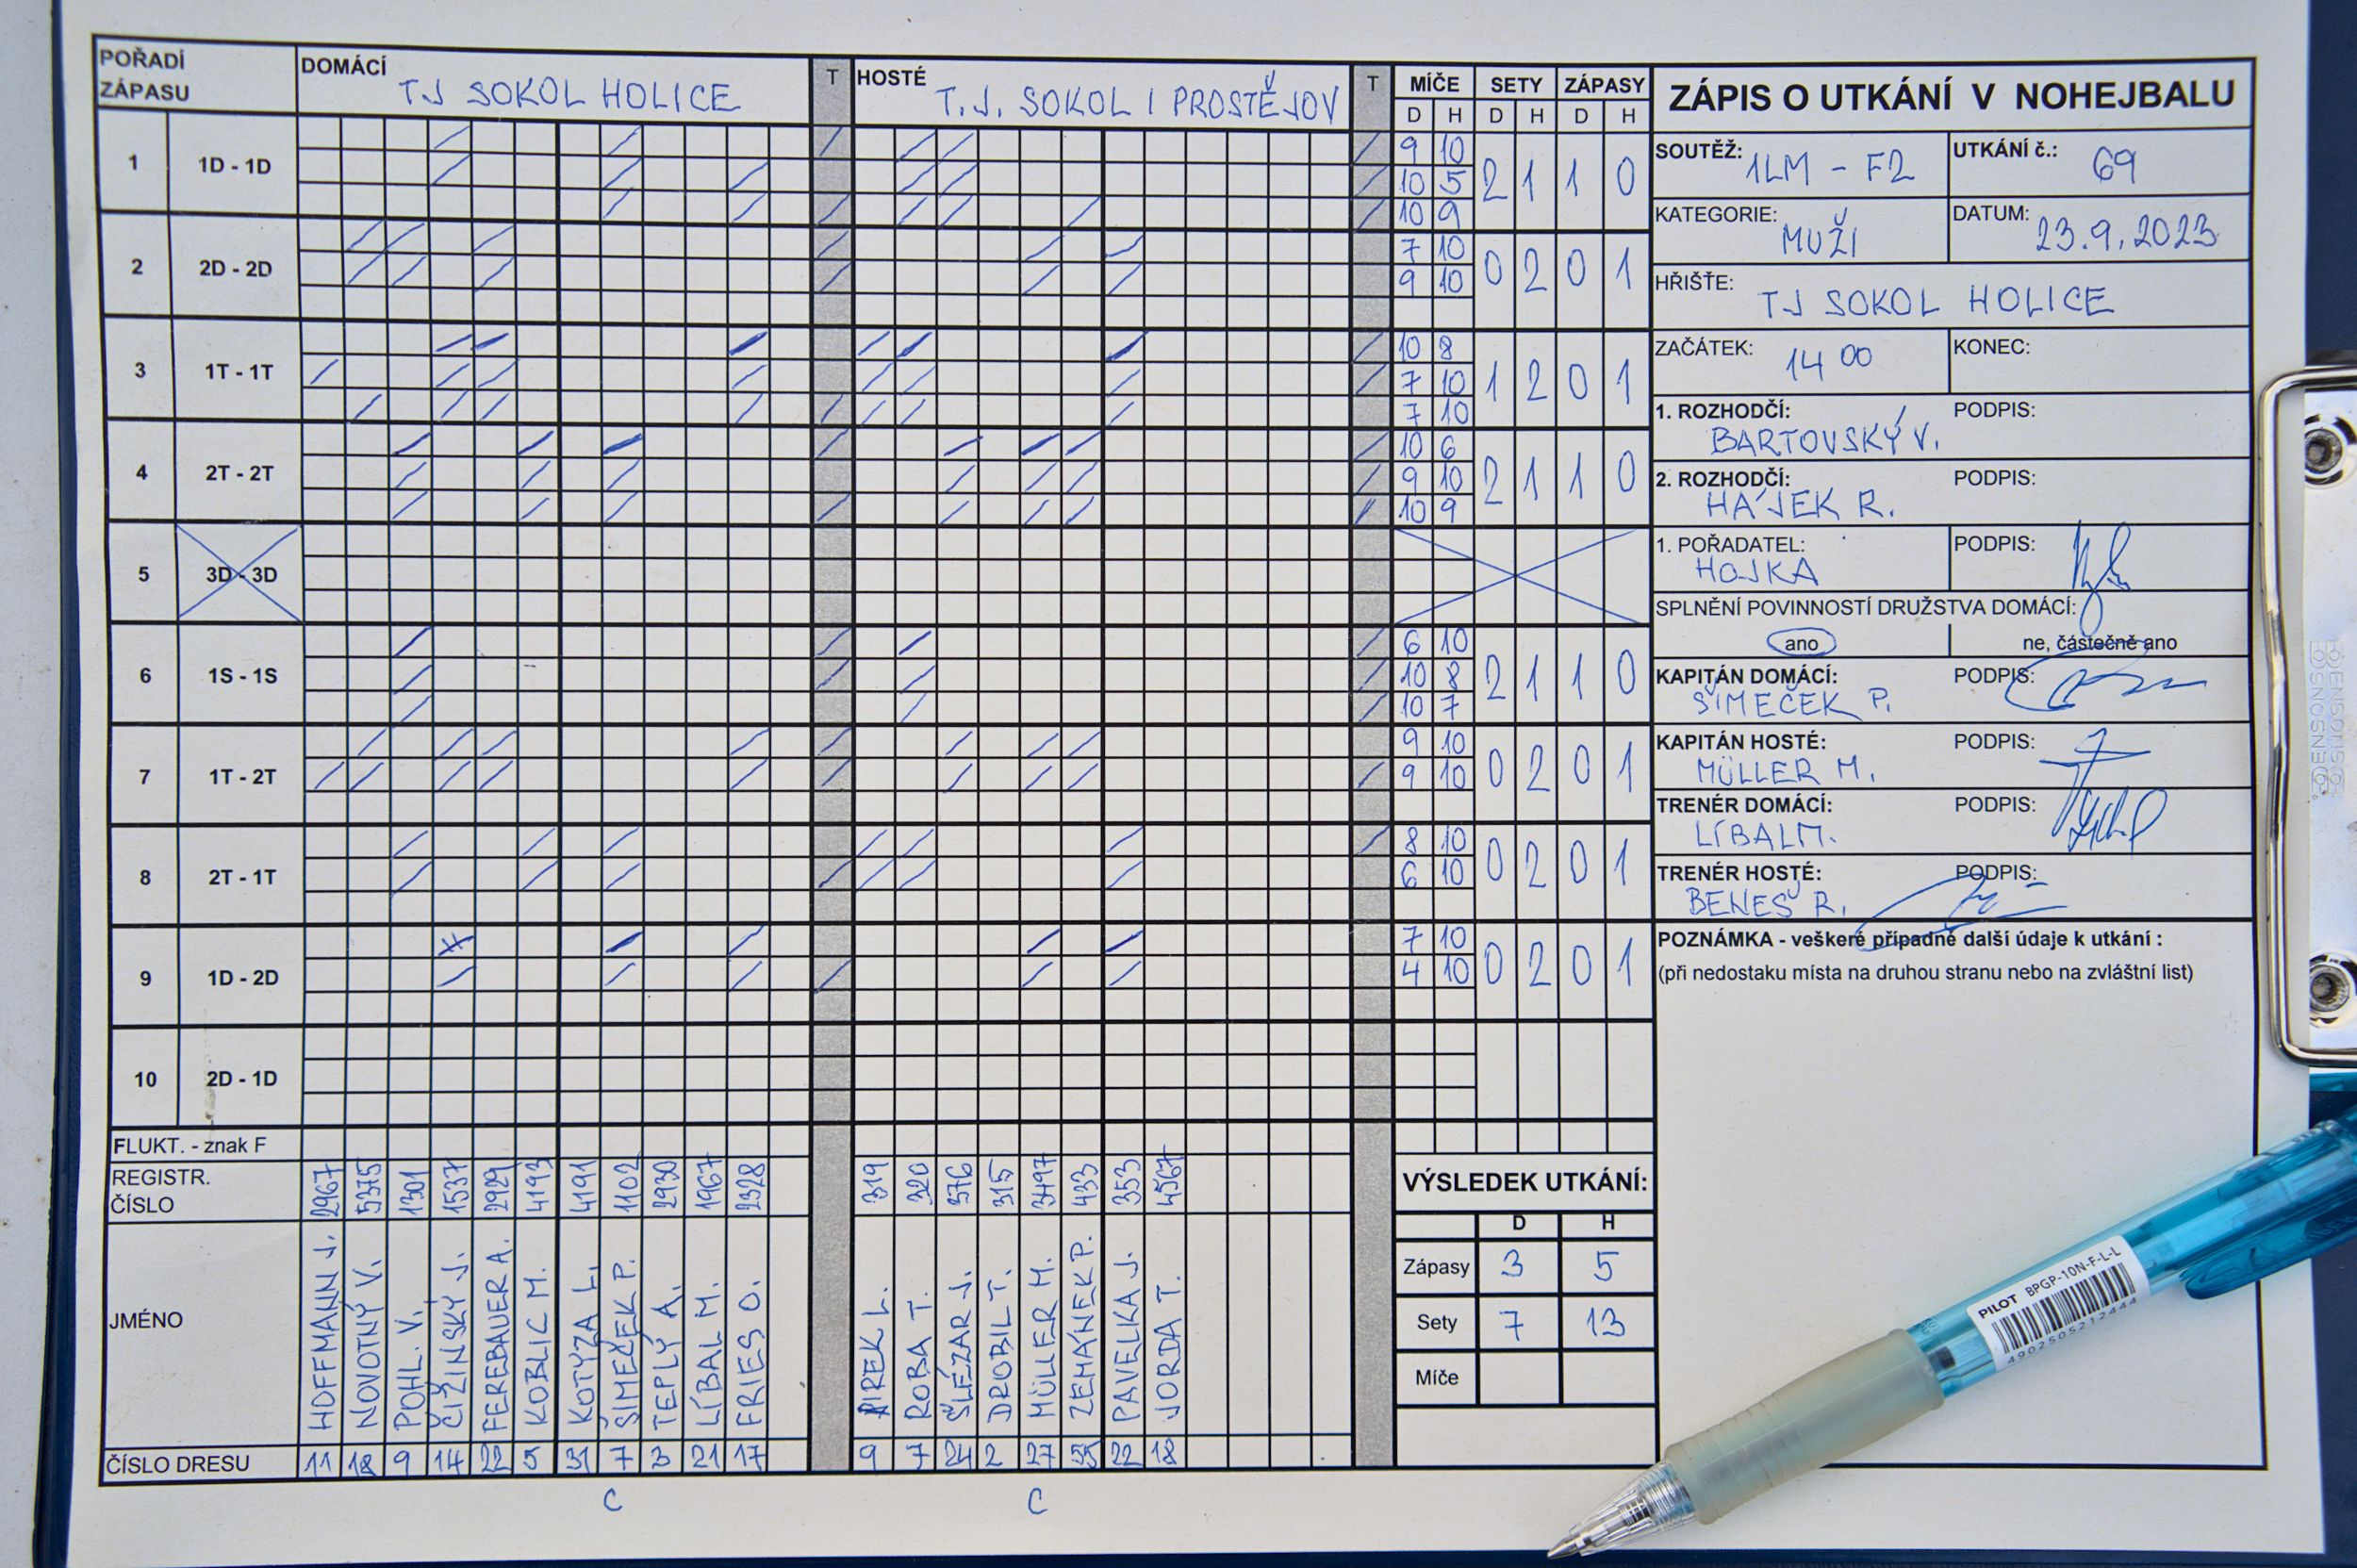 POŘADÍ
ZÁPASU
DOMÁCÍ
TJ SOKOL HOLICE
T
HOSTÉ
T.J. SOKOL I PROSTĚJOV
T
MÍČE SETY ZÁPASY
D H D H D H
1 1D - 1D
9 10
10 5 2 1 1 0
10 9
2 2D - 2D
7 10
9 10 0 2 0 1
3 1T - 1T
10 8
7 10 1 2 0 1
7 10
4 2T - 2T
10 6
9 10 2 1 1 0
10 9
5 3D - 3D
6 1S - 1S
6 10
10 8 2 1 1 0
10 7
7 1T - 2T
9 10
9 10 0 2 0 1
8 2T - 1T
8 10
6 10 0 2 0 1
9 1D - 2D
7 10
4 10 0 2 0 1
10 2D - 1D
FLUKT. - znak F
REGISTR.
ČÍSLO
2967 5375 1301 1537 2929 4193 4191 1102 2930 1967 2328
319 320 576 315 3497 433 353 4567
JMÉNO
HOFFMANN J.
NOVOTNÝ V.
POHL. V.
ČIŽINSKÝ J.
FEREBAUER A.
KOBLIC M.
KOTYZA L.
ŠIMEČEK P.
TEPLÝ A.
LÍBAL M.
FRIES O.
PIREK L.
ROBA T.
ŠLÉZAR J.
DROBIL T.
MÜLLER M.
ZEMÁNEK P.
PAVELKA J.
JORDA T.
ČÍSLO DRESU
11 18 9 14 22 5 31 7 3 21 17
9 7 24 2 27 55 22 18
C
C
VÝSLEDEK UTKÁNÍ:
D H
Zápasy 3 5
Sety 7 13
Míče
ZÁPIS O UTKÁNÍ V NOHEJBALU
SOUTĚŽ: 1LM - F2
UTKÁNÍ č.: 69
KATEGORIE: MUŽI
DATUM: 23.9.2023
HŘIŠTĚ:
TJ SOKOL HOLICE
ZAČÁTEK: 14 00
KONEC:
1. ROZHODČÍ: PODPIS:
BARTOVSKÝ V.
2. ROZHODČÍ: PODPIS:
HÁJEK R.
1. POŘADATEL: PODPIS:
HOJKA
SPLNĚNÍ POVINNOSTÍ DRUŽSTVA DOMÁCÍ:
ano ne, částečně ano
KAPITÁN DOMÁCÍ: PODPIS:
ŠIMEČEK P.
KAPITÁN HOSTÉ: PODPIS:
MÜLLER M.
TRENÉR DOMÁCÍ: PODPIS:
LÍBAL M.
TRENÉR HOSTÉ: PODPIS:
BENEŠ R.
POZNÁMKA - veškeré případné další údaje k utkání :
(při nedostaku místa na druhou stranu nebo na zvláštní list)
PILOT BPGP-10N-F-L-L
4902505212444